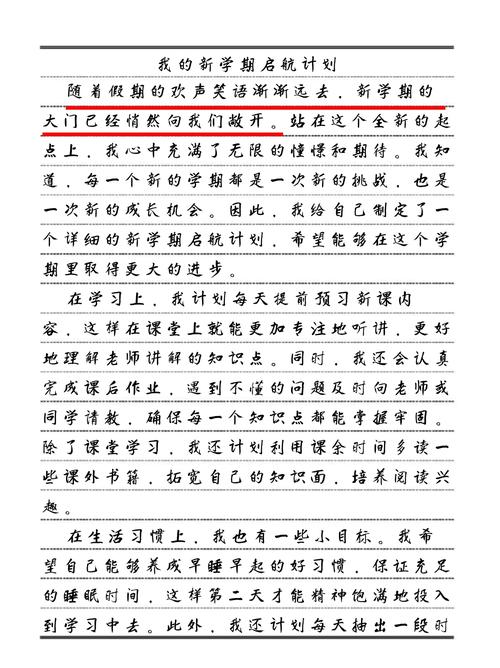 我的新学期启航计划
随着假期的欢声笑语渐渐远去，新学期的
大门已经悄然向我们敞开。站在这个全新的起
点上，我心中充满了无限的憧憬和期待。我知
道，每一个新的学期都是一次新的挑战，也是
一次新的成长机会。因此，我给自己制定了一
个详细的新学期启航计划，希望能够在这个学
期里取得更大的进步。
在学习上，我计划每天提前预习新课内
容，这样在课堂上就能更加专注地听讲，更好
地理解老师讲解的知识点。同时，我还会认真
完成课后作业，遇到不懂的问题及时向老师或
同学请教，确保每一个知识点都能掌握牢固。
除了课堂学习，我还计划利用课余时间多读一
些课外书籍，拓宽自己的知识面，培养阅读兴
趣。
在生活习惯上，我也有一些小目标。我希
望自己能够养成早睡早起的好习惯，保证充足
的睡眠时间，这样第二天才能精神饱满地投入
到学习中去。此外，我还计划每天抽出一段时